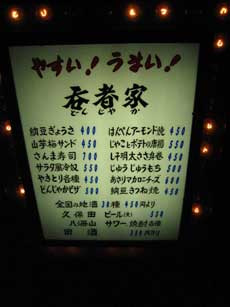 やすい！うまい！
呑者家
どんじゃか
納豆ぎょうざ 400
山芋梅サンド 450
さんま寿司 700
サラダ風冷奴 550
やきとり各種
どんじゃかピザ
はんぺんアーモンド焼 450
じゃことポテトの唐揚 550
しそ明太ささみ巻 450
じゅうじゅうもち 500
あさりマカロニチーズ 600
納豆きつね焼 450
全国の地酒 30種 450円より
久保田 ビール(大)
八海山 サワー、焼酎各種
田酒 350円より